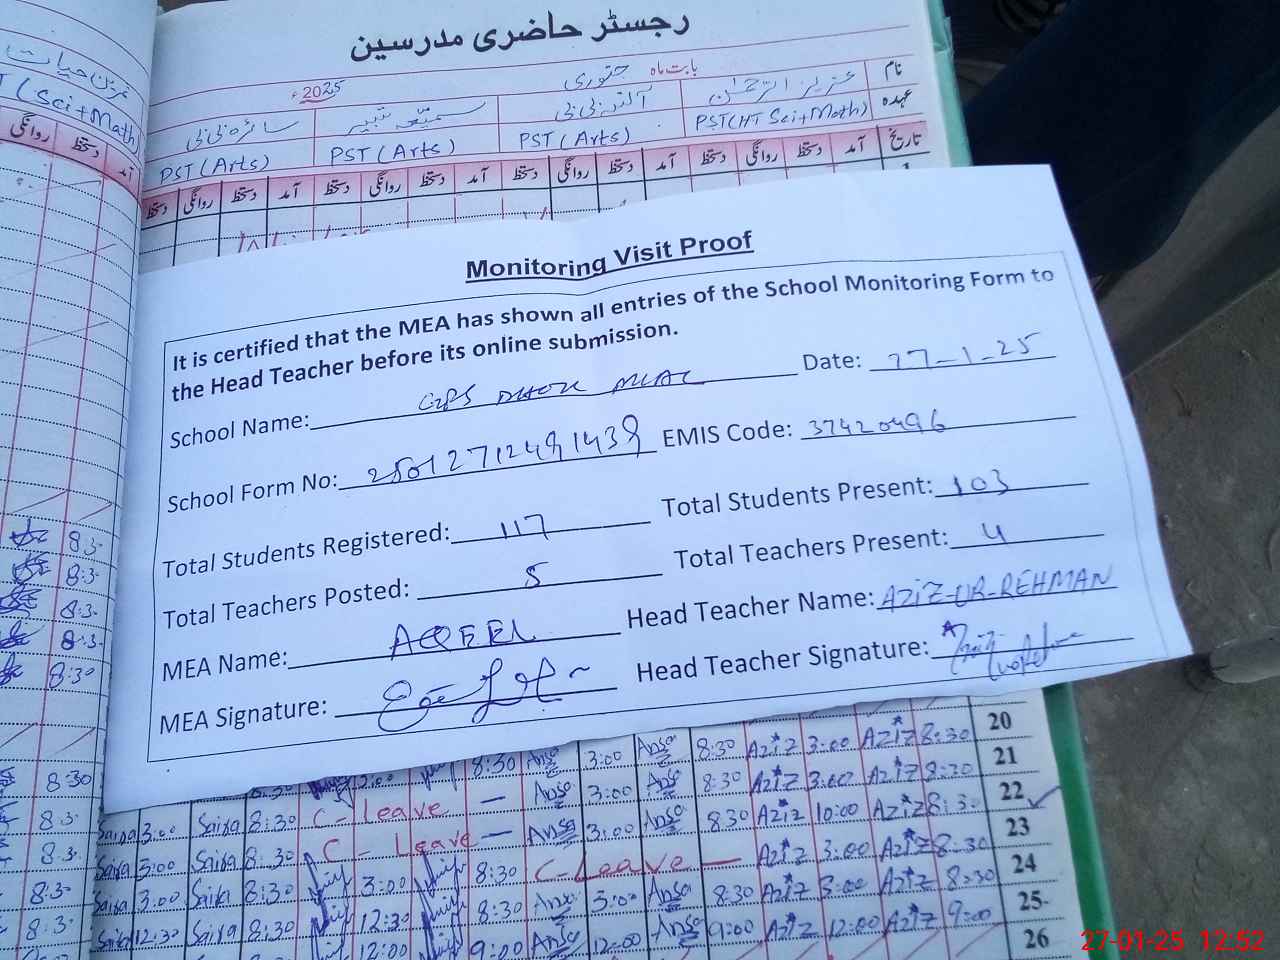 رجسٹر حاضری مدرسین
بابت ماہ جنوری 2025ء
نام عزیز الرحمٰن آنسہ بی بی سمیعہ سائرہ بی بی
عہدہ PST(HT Sci+Math) PST(Arts) PST(Arts) PST(Arts)
(Sci+Math)
تاریخ آمد دستخط روانگی دستخط آمد دستخط روانگی دستخط آمد دستخط روانگی دستخط آمد دستخط روانگی دستخط
آمد دستخط روانگی
Monitoring Visit Proof
It is certified that the MEA has shown all entries of the School Monitoring Form to
the Head Teacher before its online submission.
School Name: GPS DHOK Date: 27-1-25
School Form No: 25012712491439 EMIS Code: 37420496
Total Students Registered: 117 Total Students Present: 103
Total Teachers Posted: 5 Total Teachers Present: 4
MEA Name: AQEEL Head Teacher Name: AZIZ-UR-REHMAN
MEA Signature: Head Teacher Signature:
8:30 Ansa 3:00 Ansa 8:30 Aziz 3:00 Aziz 8:30 20
8:30 C-Leave — Ansa 3:00 Ansa 8:30 Aziz 3:00 Aziz 8:30 21
8:3 Saira 3:00 Saira 8:30 C-Leave — Ansa 3:00 Ansa 8:30 Aziz 10:00 Aziz 8:30 22
8:3 Saira 3:00 Saira 8:30 3:00 8:30 C-Leave — Aziz 3:00 Aziz 8:30 23
8:30 Saira 3:00 Saira 8:30 12:30 8:30 Ansa 3:00 Ansa 8:30 Aziz 3:00 Aziz 8:30 24
8:30 Saira 12:30 Saira 8:30 12:00 9:00 Ansa 12:00 Ansa 9:00 Aziz 12:00 Aziz 9:00 25
26
27-01-25 12:52